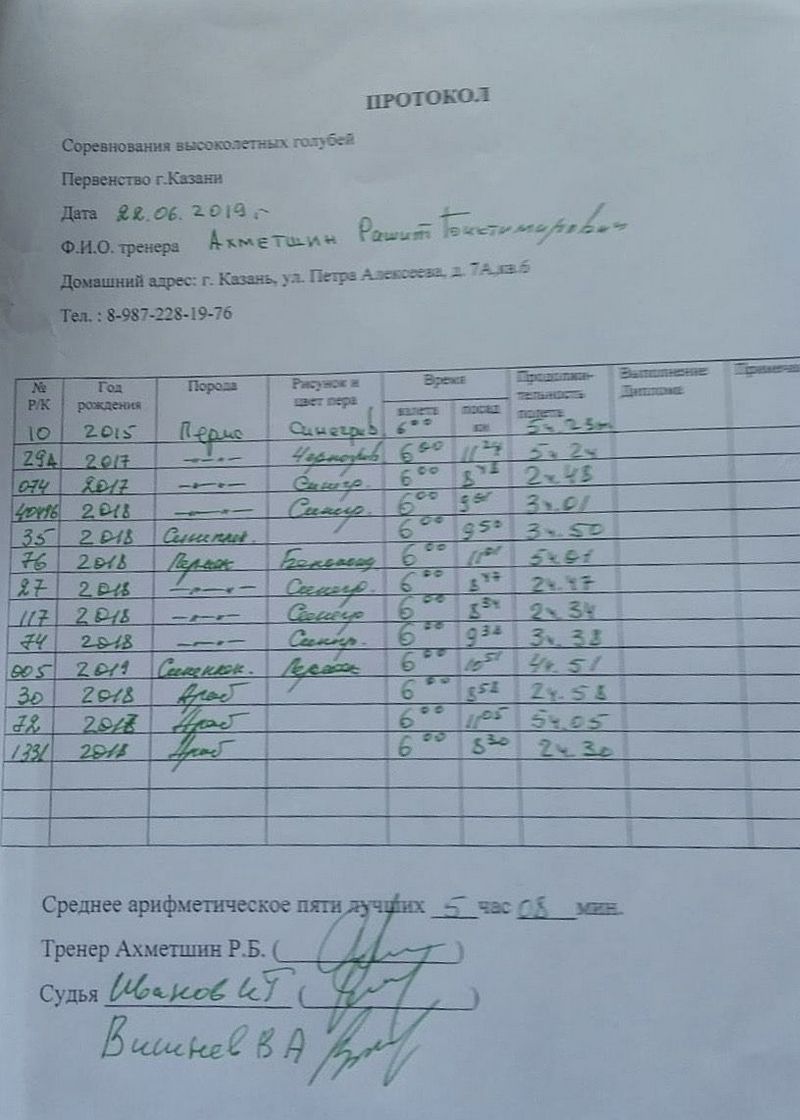 ПРОТОКОЛ
Соревнования высоколетных голубей
Первенство г.Казани
Дата 22.06.2019 г
Ф.И.О. тренера Ахметшин Рашит
Домашний адрес: г. Казань, ул. Петра Алексеева, д. 7А,кв.6
Тел. : 8-987-228-19-76
№ Р/К Год рождения Порода Рисунок и цвет пера Время взлета посад ки Продолжи- тельность полета Выполнение Диплома Примеча
10 2015 Перис Синегрив 6 00 5ч 23м
29А 2017 —»— Черногрив 6 00 11 24 5ч 24
074 2017 —»— Синегр. 6 00 8 48 2ч 48
2018 —»— Синегр. 6 00 9 01 3ч.01
35 2018 6 00 9 50 3ч.50
76 2018 6 00 11 01 5ч 01
27 2018 —»— Синегр. 6 00 8 47 2ч.47
117 2018 —»— Синегр 6 00 8 34 2ч 34
74 2018 —»— Синегр. 6 00 9 38 3ч.38
005 2019 6 00 10 51 4ч.51
30 2018 Араб 6 00 8 58 2ч.58
72 2018 Араб 6 00 11 05 5ч.05
1331 2018 Араб 6 00 8 30 2ч 30
Среднее арифметическое пяти лучших 5 час 08 мин.
Тренер Ахметшин Р.Б. ( )
Судья Иванов И Г ( )
Вишнев В А